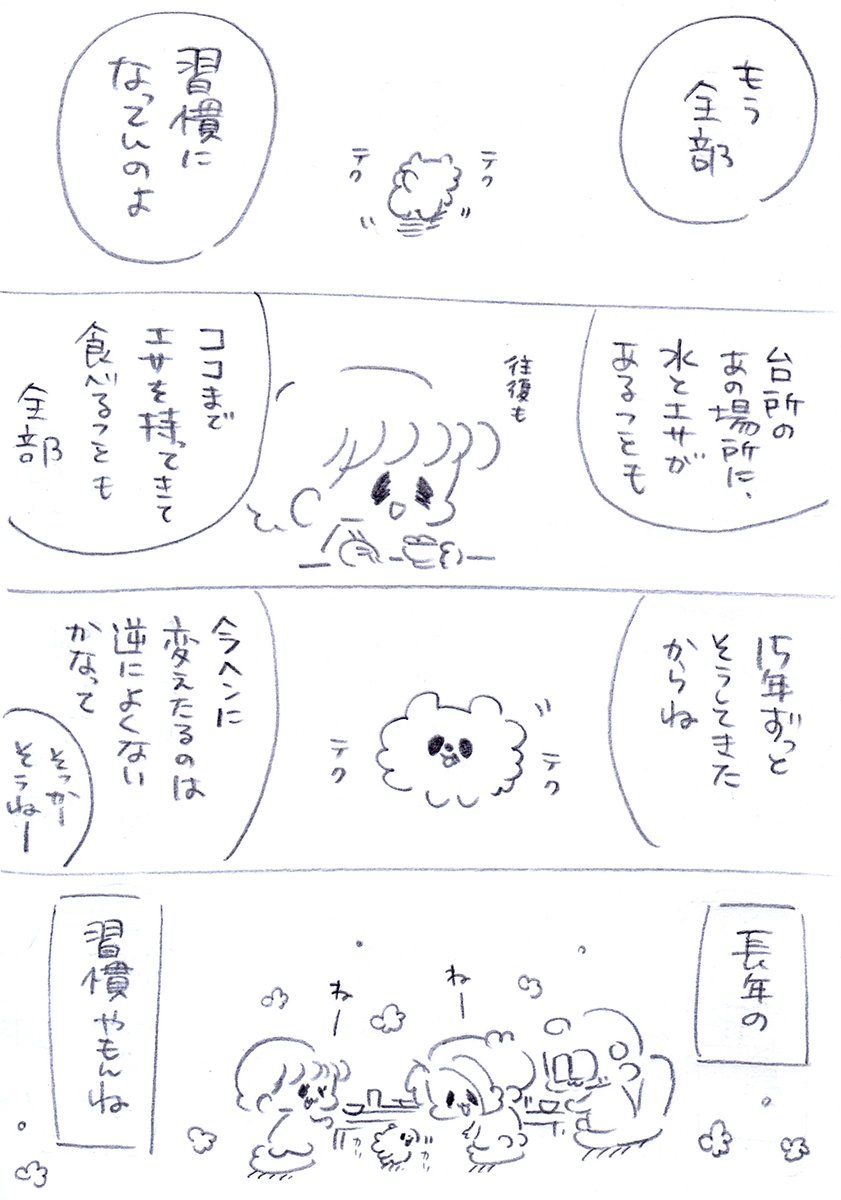 もう
全部
テク
テク
習慣に
なっているのよ
台所の
あの場所に、
水とエサが
あることも
往復も
ココまで
エサを持ってきて
食べることも
全部
15年ずっと
そうしてきた
からね
テク
テク
今ヘンに
変えたるのは
逆によくない
かなって
そっかー
そうねー
長年の
ねー
ねー
習慣やもんね